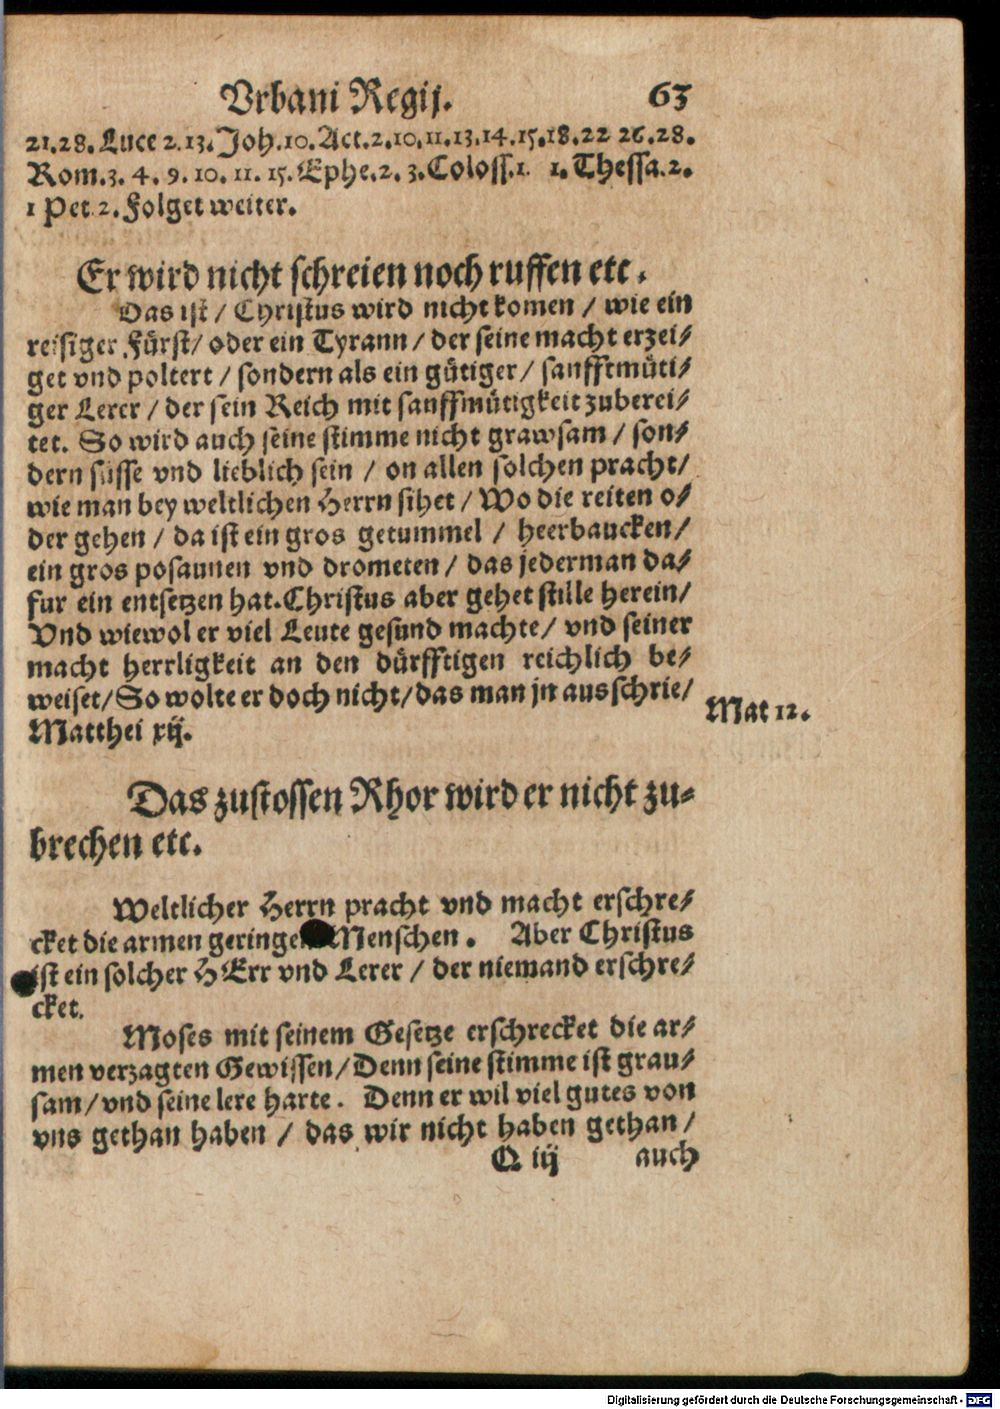 Vrbani Regij. 63
21.28. Luce 2.13. Joh.10. Act.2.10.11.13.14.15.18.22 26.28.
Rom.3. 4. 9. 10. 11. 15. Ephe.2. 3. Coloss.1. 1. Thessa.2.
1 Pet 2. Folget weiter.
Er wird nicht schreien noch ruffen etc.
Das ist / Christus wird nicht komen / wie ein
reisiger Fürst / oder ein Tyrann / der seine macht erzei-
get vnd poltert / sondern als ein gütiger / sanfftmüti-
ger Lerer / der sein Reich mit sanffmütigkeit zuberei-
tet. So wird auch seine stimme nicht grawsam / son-
dern süsse vnd lieblich sein / on allen solchen pracht /
wie man bey weltlichen Herrn sihet / Wo die reiten o-
der gehen / da ist ein gros getummel / heerbaucken /
ein gros posaunen vnd drometen / das jederman da-
fur ein entsetzen hat. Christus aber gehet stille herein /
Vnd wiewol er viel Leute gesund machte / vnd seiner
macht herrligkeit an den dürfftigen reichlich be-
weiset / So wolte er doch nicht / das man jn ausschrie /
Matthei xij.
Mat 12.
Das zustossen Rhor wird er nicht zu-
brechen etc.
Weltlicher Herrn pracht vnd macht erschre-
cket die armen geringen Menschen. Aber Christus
ist ein solcher HErr vnd Lerer / der niemand erschre-
cket.
Moses mit seinem Gesetze erschrecket die ar-
men verzagten Gewissen / Denn seine stimme ist grau-
sam / vnd seine lere harte. Denn er wil viel gutes von
vns gethan haben / das wir nicht haben gethan /
Q iij auch
Digitalisierung gefördert durch die Deutsche Forschungsgemeinschaft - DFG